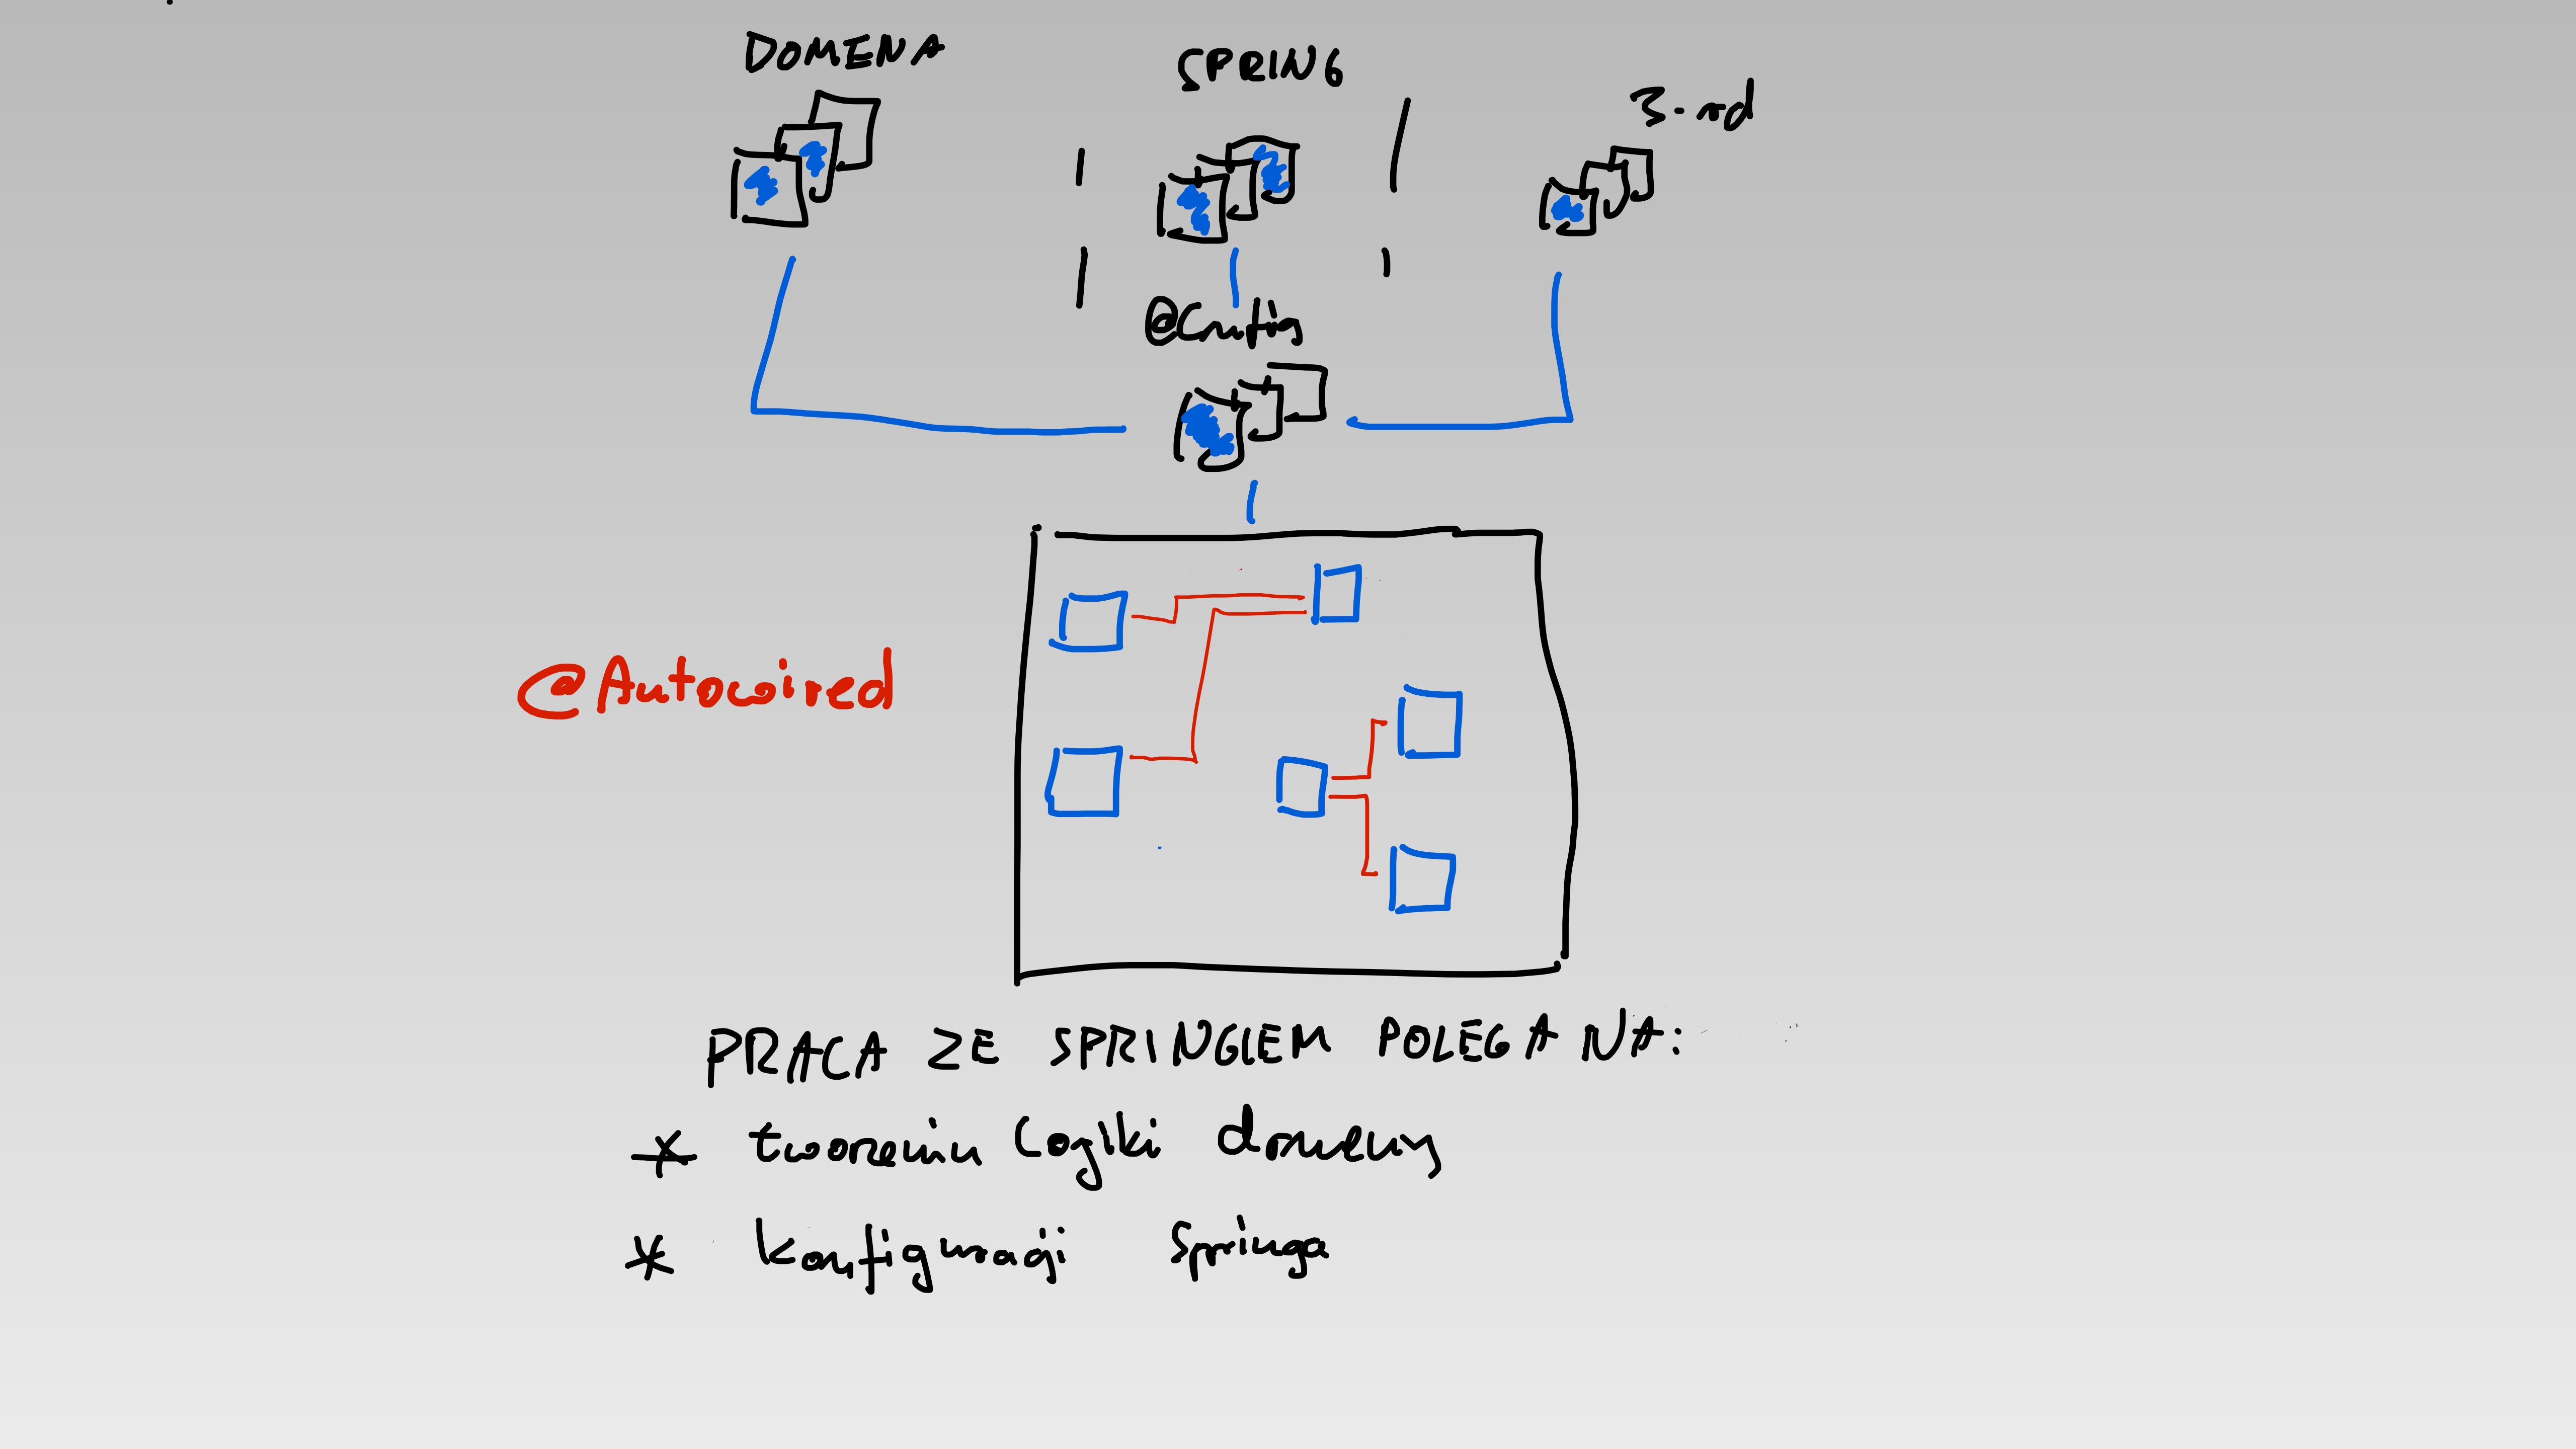 DOMENA
SPRING
3-rd
@Config
@Autowired
PRACA ZE SPRINGIEM POLEGA NA:
* tworzeniu logiki domeny
* konfiguracji Springa